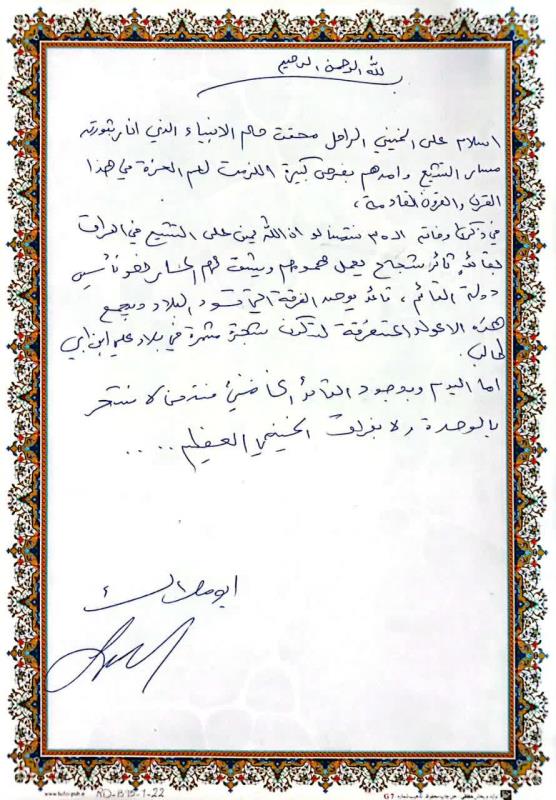 لله الرحمن الرحيم
اسلام على الخميني الراحل محقق حلم الانبياء الذي انار بثورته
مسار التشيع وامدهم بفرص كبيرة اللزمت لهم العزة في هذا
القرن والقرون القادمة،
في ذكرى وفاته الـ ٣٥ نتمنا لو ان الله يمن على التشيع في العراق
بقائد ثائر شجاع يحمل همومهم ويثبت لهم المسار نحو تأسيس
دولة القائم، قائد يوحد الفرقة التي تسود البلاد ويجمع
هذه الاعواد المتفرقة لتكون شجرة مثمرة في بلاد علي ابن ابي
طالب.
اما اليوم وبوجود القائد الخامنئي فنحن لا نشعر
بالوحدة ولا بفراق الخميني العظيم ....
ابو
www.hafez-pub.ir
ND-B-15-1-22
G 7